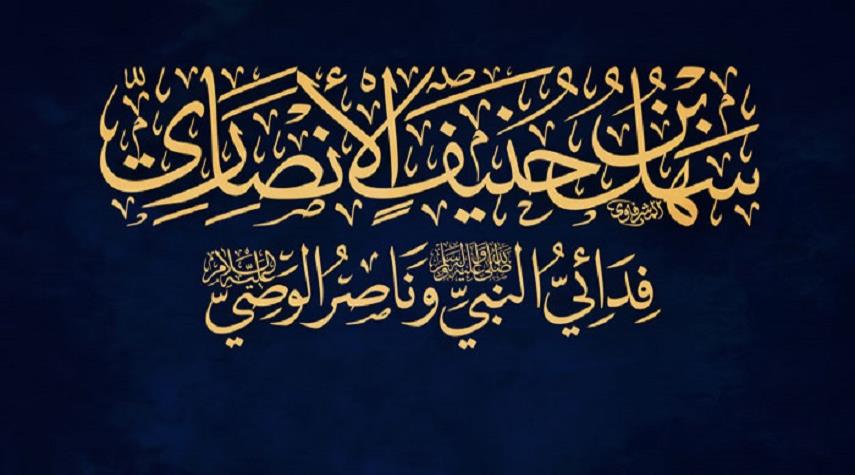 سَهْلُ بْنُ حُنَيْفٍ الْأَنْصَارِيّ
الشرفاوي
فِدَائِيُّ النَّبِيِّ صلى الله عليه وآله وسلم وَنَاصِرُ الْوَصِيِّ عليه السلام